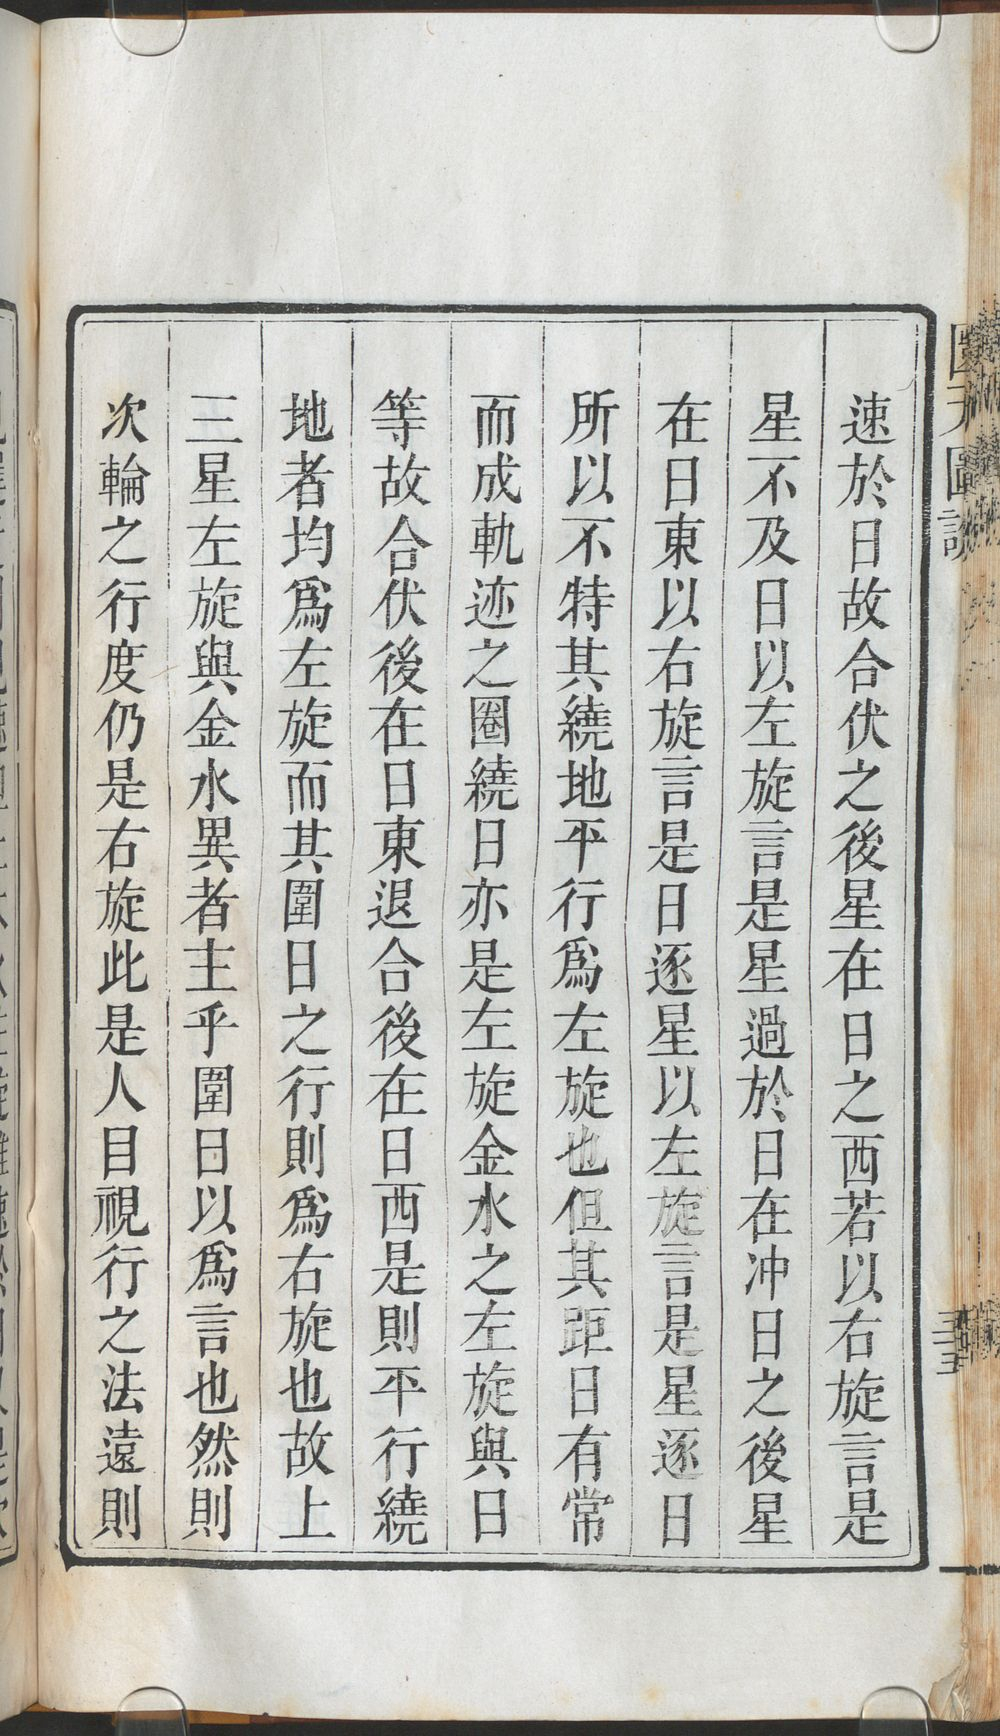 速於日故合伏之後星在日之西若以右旋言是
星不及日以左旋言是星過於日在冲日之後星
在日東以右旋言是日逐星以左旋言是星逐日
所以不特其繞地平行爲左旋也但其距日有常
而成軌迹之圈繞日亦是左旋金水之左旋與日
等故合伏後在日東退合後在日西是則平行繞
地者均爲左旋而其圍日之行則爲右旋也故上
三星左旋與金水異者主乎圍日以爲言也然則
次輪之行度仍是右旋此是人目視行之法遠則
圜天圖說